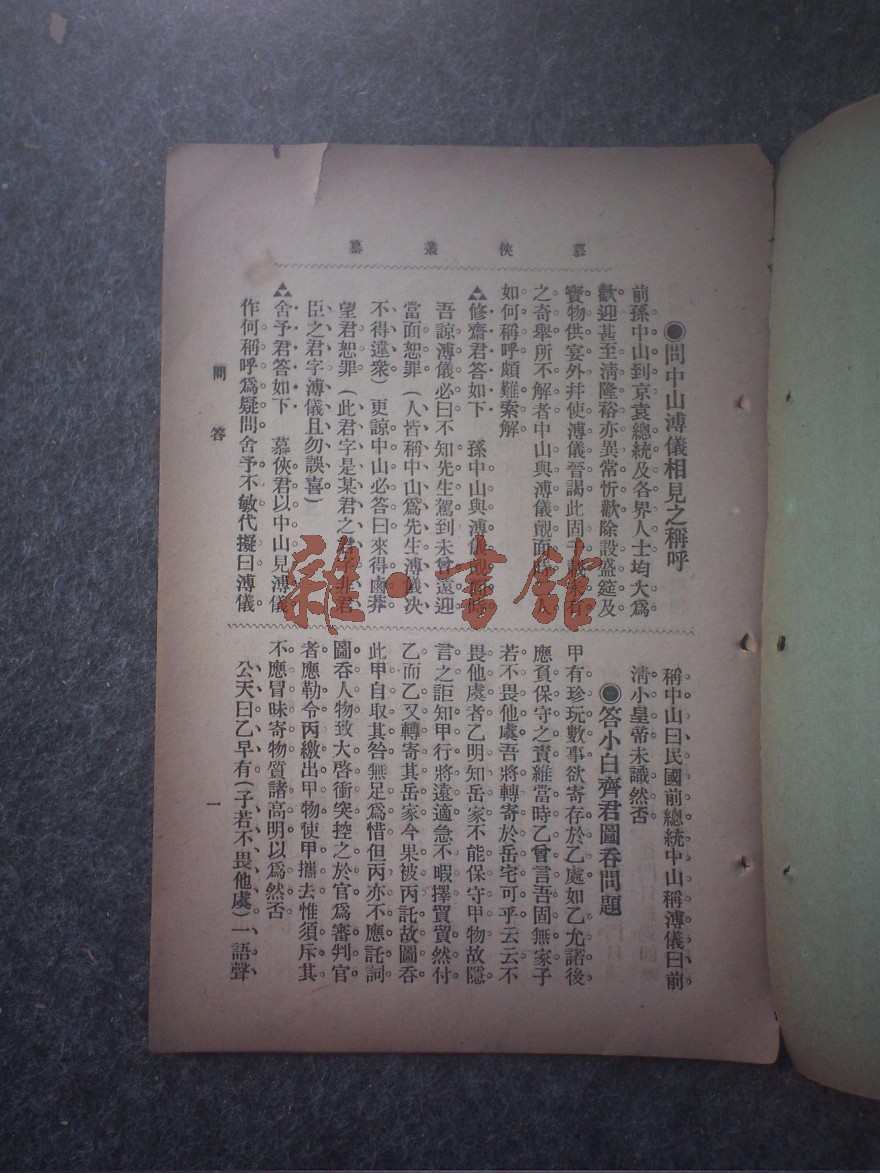 慕俠叢纂
●問中山溥儀相見之稱呼
前孫中山到京袁總統及各界人士均大爲
歡迎甚至淸隆裕亦異常忻歡除設盛筵及
寶物供宴外并使溥儀晉謁此固千載未有
之奇舉所不解者中山與溥儀覿面時二人
如何稱呼頗難索解
▲修齋君答如下　孫中山與溥儀覿面時
吾諒溥儀必曰不知先生駕到未曾遠迎
當面恕罪（人皆稱中山爲先生溥儀決
不得違衆）更諒中山必答曰來得鹵莽
望君恕罪（此君字是某君之君字非君
臣之君字溥儀且勿誤喜）
▲舍予君答如下　慕俠君以中山見溥儀
作何稱呼爲疑問舍予不敏代擬曰溥儀
稱中山曰民國前總統中山稱溥儀曰前
淸小皇帝未識然否
●答小白齊君圖吞問題
甲有珍玩數事欲寄存於乙處如乙允諾後
應負保守之責維當時乙曾言吾固無家子
若不畏他虞吾將轉寄於岳宅可乎云云不
畏他虞者乙明知岳家不能保守甲物故隱
言之詎知甲行將遠適急不暇擇貿貿然付
乙而乙又轉寄其岳家今果被丙託故圖吞
此甲自取其咎無足爲惜但丙亦不應託詞
圖吞人物致大啓衝突控之於官爲審判官
者應勒令丙繳出甲物使甲攜去惟須斥其
不應冒昧寄物質諸高明以爲然否
公天曰乙早有（子若不畏他虞）一語聲
問答
一
雜·書館